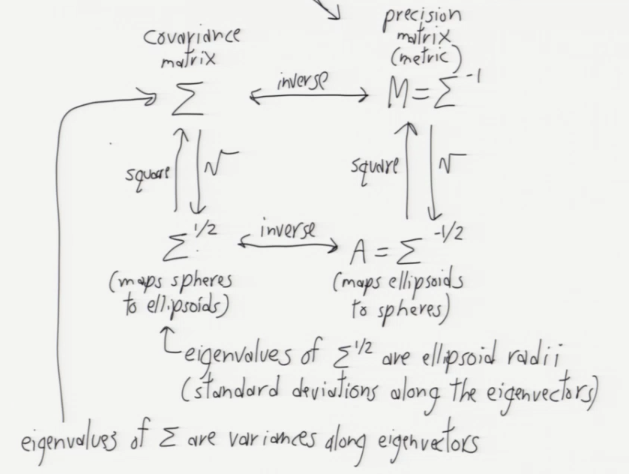 precision
covariance matrix
matrix (metric)
Σ inverse M = Σ⁻¹
square √ square √
Σ¹/² inverse A = Σ⁻¹/²
(maps spheres (maps ellipsoids
to ellipsoids) to spheres)
eigenvalues of Σ¹/² are ellipsoid radii
(standard deviations along the eigenvectors)
eigenvalues of Σ are variances along eigenvectors